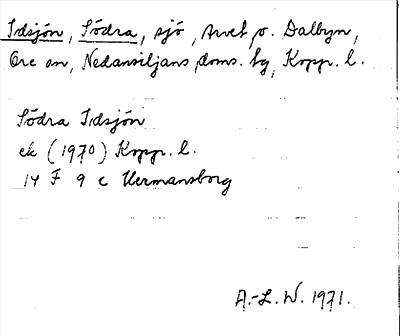 Idsjön, Södra, sjö, srvet o. Dalbyn,
Ore sn, Nedansiljans doms. tg, Kopp. l.
Södra Idsjön
ek (1970) Kopp. l.
14 F 9 c Hermansborg
A.-L. W. 1971.